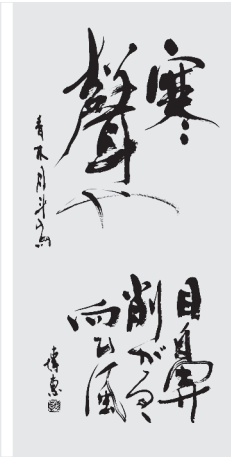 寒
聲や
目鼻
削がるゝ
向ひ風
青木月斗の句